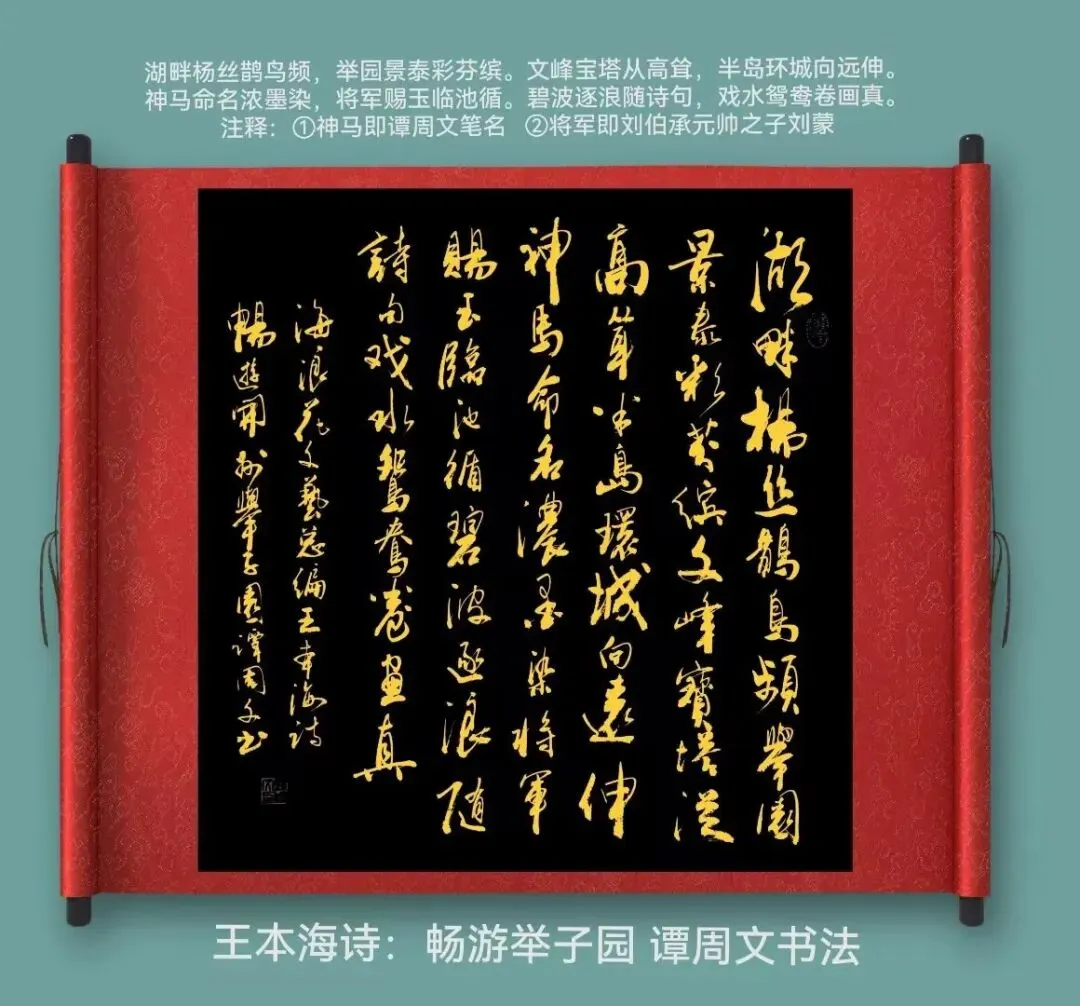 湖畔杨丝鹊鸟频，举园景泰彩芬缤。文峰宝塔从高耸，半岛环城向远伸。
神马命名浓墨染，将军赐玉临池循。碧波逐浪随诗句，戏水鸳鸯卷画真。
注释：①神马即谭周文笔名 ②将军即刘伯承元帅之子刘蒙
湖畔楊丝鵲鳥頻舉園
景泰彩芬缤文峰寶塔從
高耸半島環城向遠伸
神馬命名濃墨染將軍
賜玉臨池循碧波逐浪随
詩句戏水鴛鴦卷畫真
海浪花文藝总编王本海诗
暢遊開州舉子園譚周文书
王本海诗：畅游举子园 谭周文书法